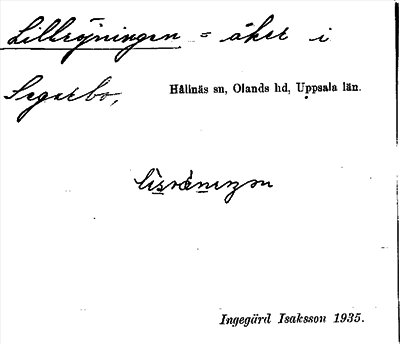 Lillröjningen = åker i
Segerbo,
Hållnäs sn, Olands hd, Uppsala län.
Ingegärd Isaksson 1935.